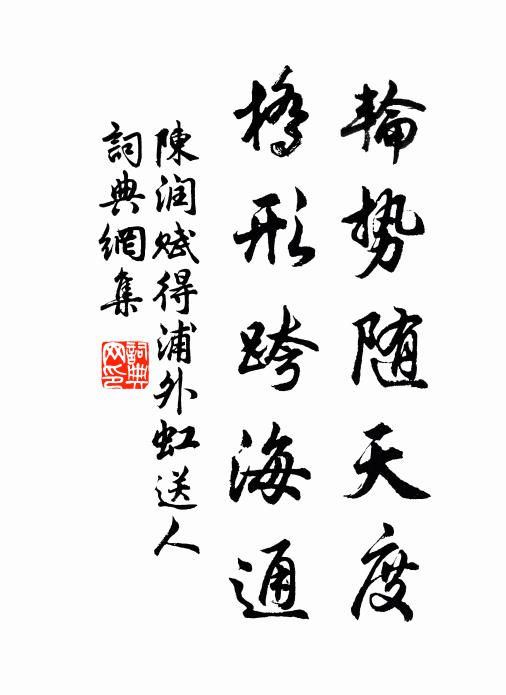 輪势随天度
橋形跨海通
陳润赋得浦外虹送人
詞典網集
詞典网印